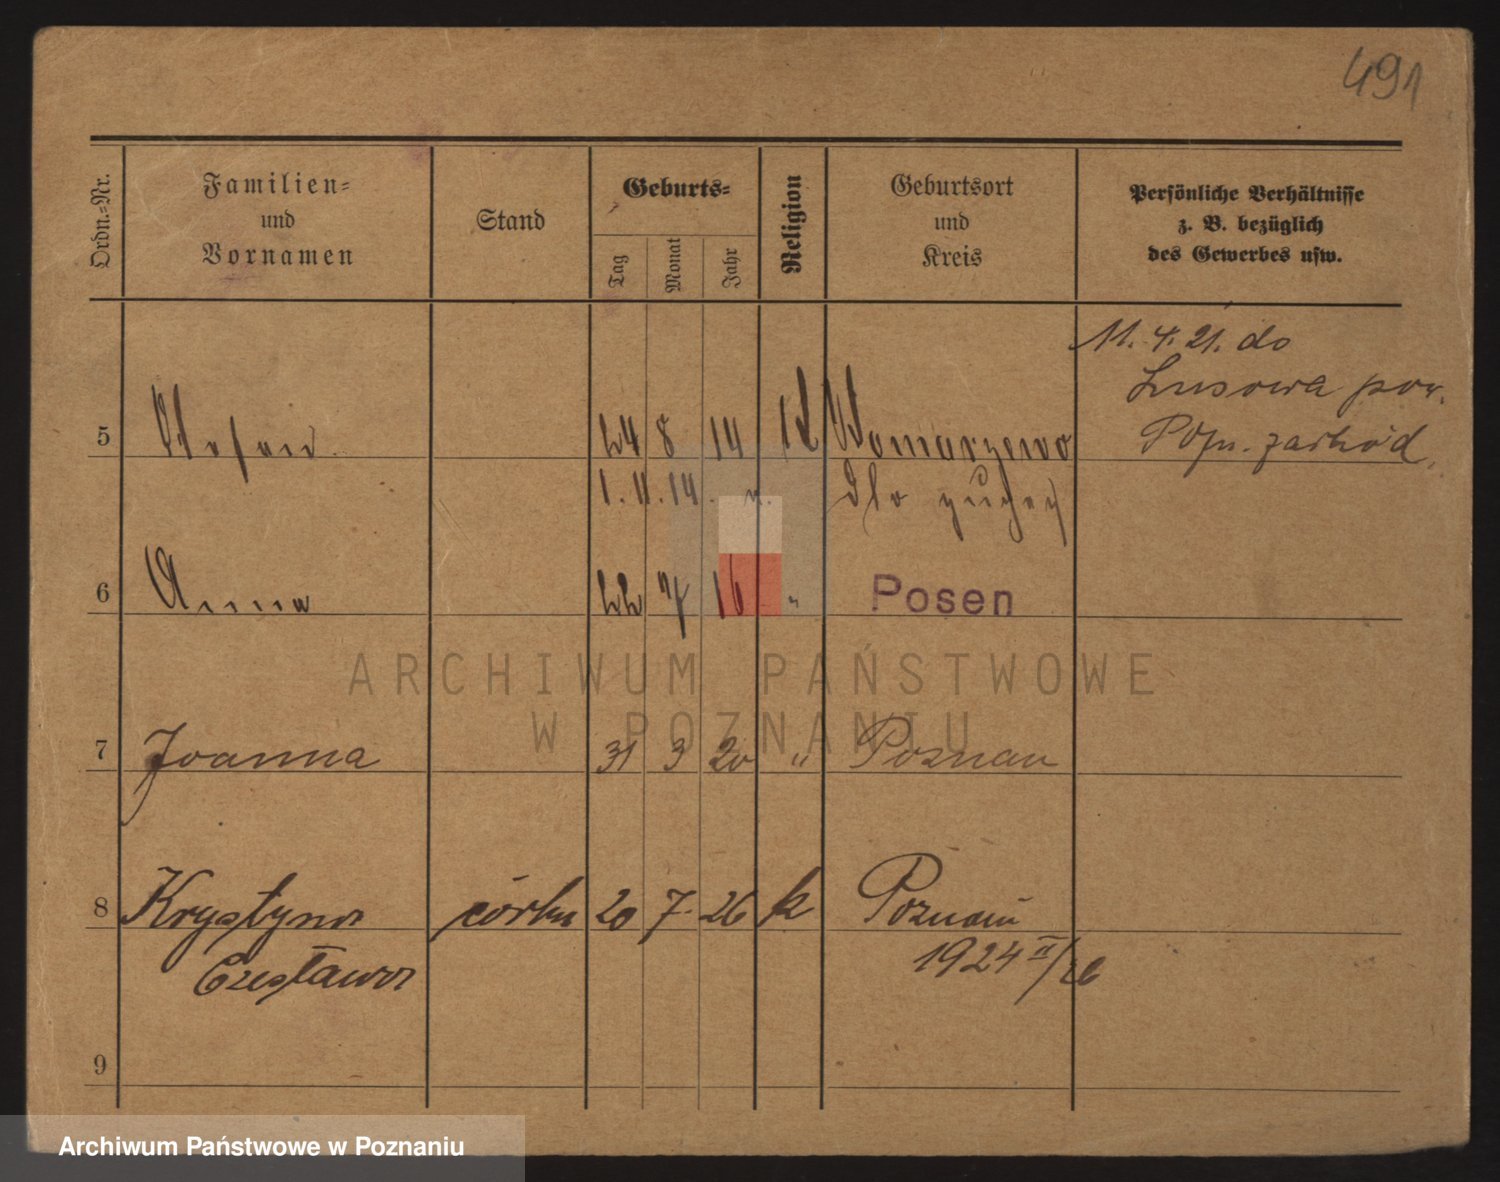 491
Ordn.=Nr.
Familien=
und
Vornamen
Stand
Geburts=
Tag
Monat
Jahr
Religion
Geburtsort
und
Kreis
Persönliche Verhältnisse
z. B. bezüglich
des Gewerbes usw.
11. 4. 21. do
Lusowa pow.
Pozn. zachód.
5 Stefan 24 8 14
1. 11. 14.
6 Anna 22 7 16 " Posen
ARCHIWUM PAŃSTWOWE
W POZNANIU
7 Joanna 31 3 20 " Poznan
8 Krystyna córka 20 7. 26 k Poznań
Czesława 1924 II/26
9
Archiwum Państwowe w Poznaniu